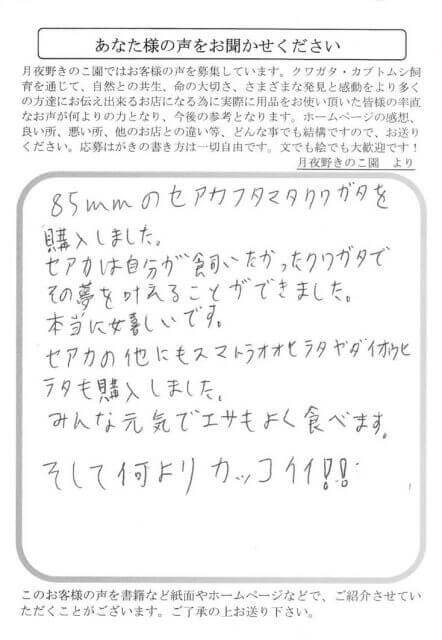 あなた様の声をお聞かせください
月夜野きのこ園ではお客様の声を募集しています。クワガタ・カブトムシ飼
育を通じて、自然との共生、命の大切さ、さまざまな発見と感動をより多く
の方達にお伝え出来るお店になる為に実際に用品をお使い頂いた皆様の率直
なお声が何よりの力となり、今後の参考となります。ホームページの感想、
良い所、悪い所、他のお店との違い等、どんな事でも結構ですので、お送り
ください。応募はがきの書き方は一切自由です。文でも絵でも大歓迎です！
月夜野きのこ園　より
85mmのセアカフタマタクワガタを
購入しました。
セアカは自分が飼いたかったクワガタで
その夢を叶えることができました。
本当に嬉しいです。
セアカの他にもスマトラオオヒラタやダイオウヒ
ラタも購入しました。
みんな元気でエサもよく食べます。
そして何よりカッコイイ!!
このお客様の声を書籍など紙面やホームページなどで、ご紹介させてい
ただくことがございます。ご了承の上お送り下さい。